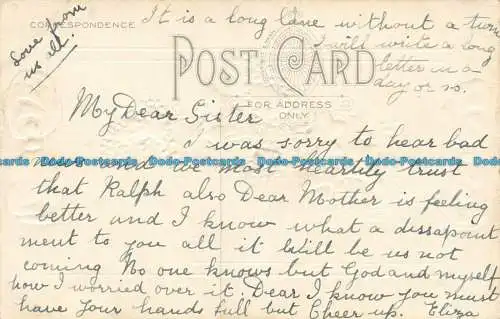 CORRESPONDENCE
Love from
us all.
It is a long lane without a turn
I will write a long
letter in a
day or so.
POST CARD
FOR ADDRESS
ONLY
My Dear Sister
I was sorry to hear bad
news and we most heartily trust
that Ralph also Dear Mother is feeling
better and I know what a dissapoint
ment to you all it Will be us not
coming No one knows but God and myself
how I worried over it. Dear I know you must
have your hands full but Cheer up. Eliza
Dodo-Postcards Dodo-Postcards Dodo-Postcards Dodo-Postcards Dodo-Postcards Dodo-Postcards